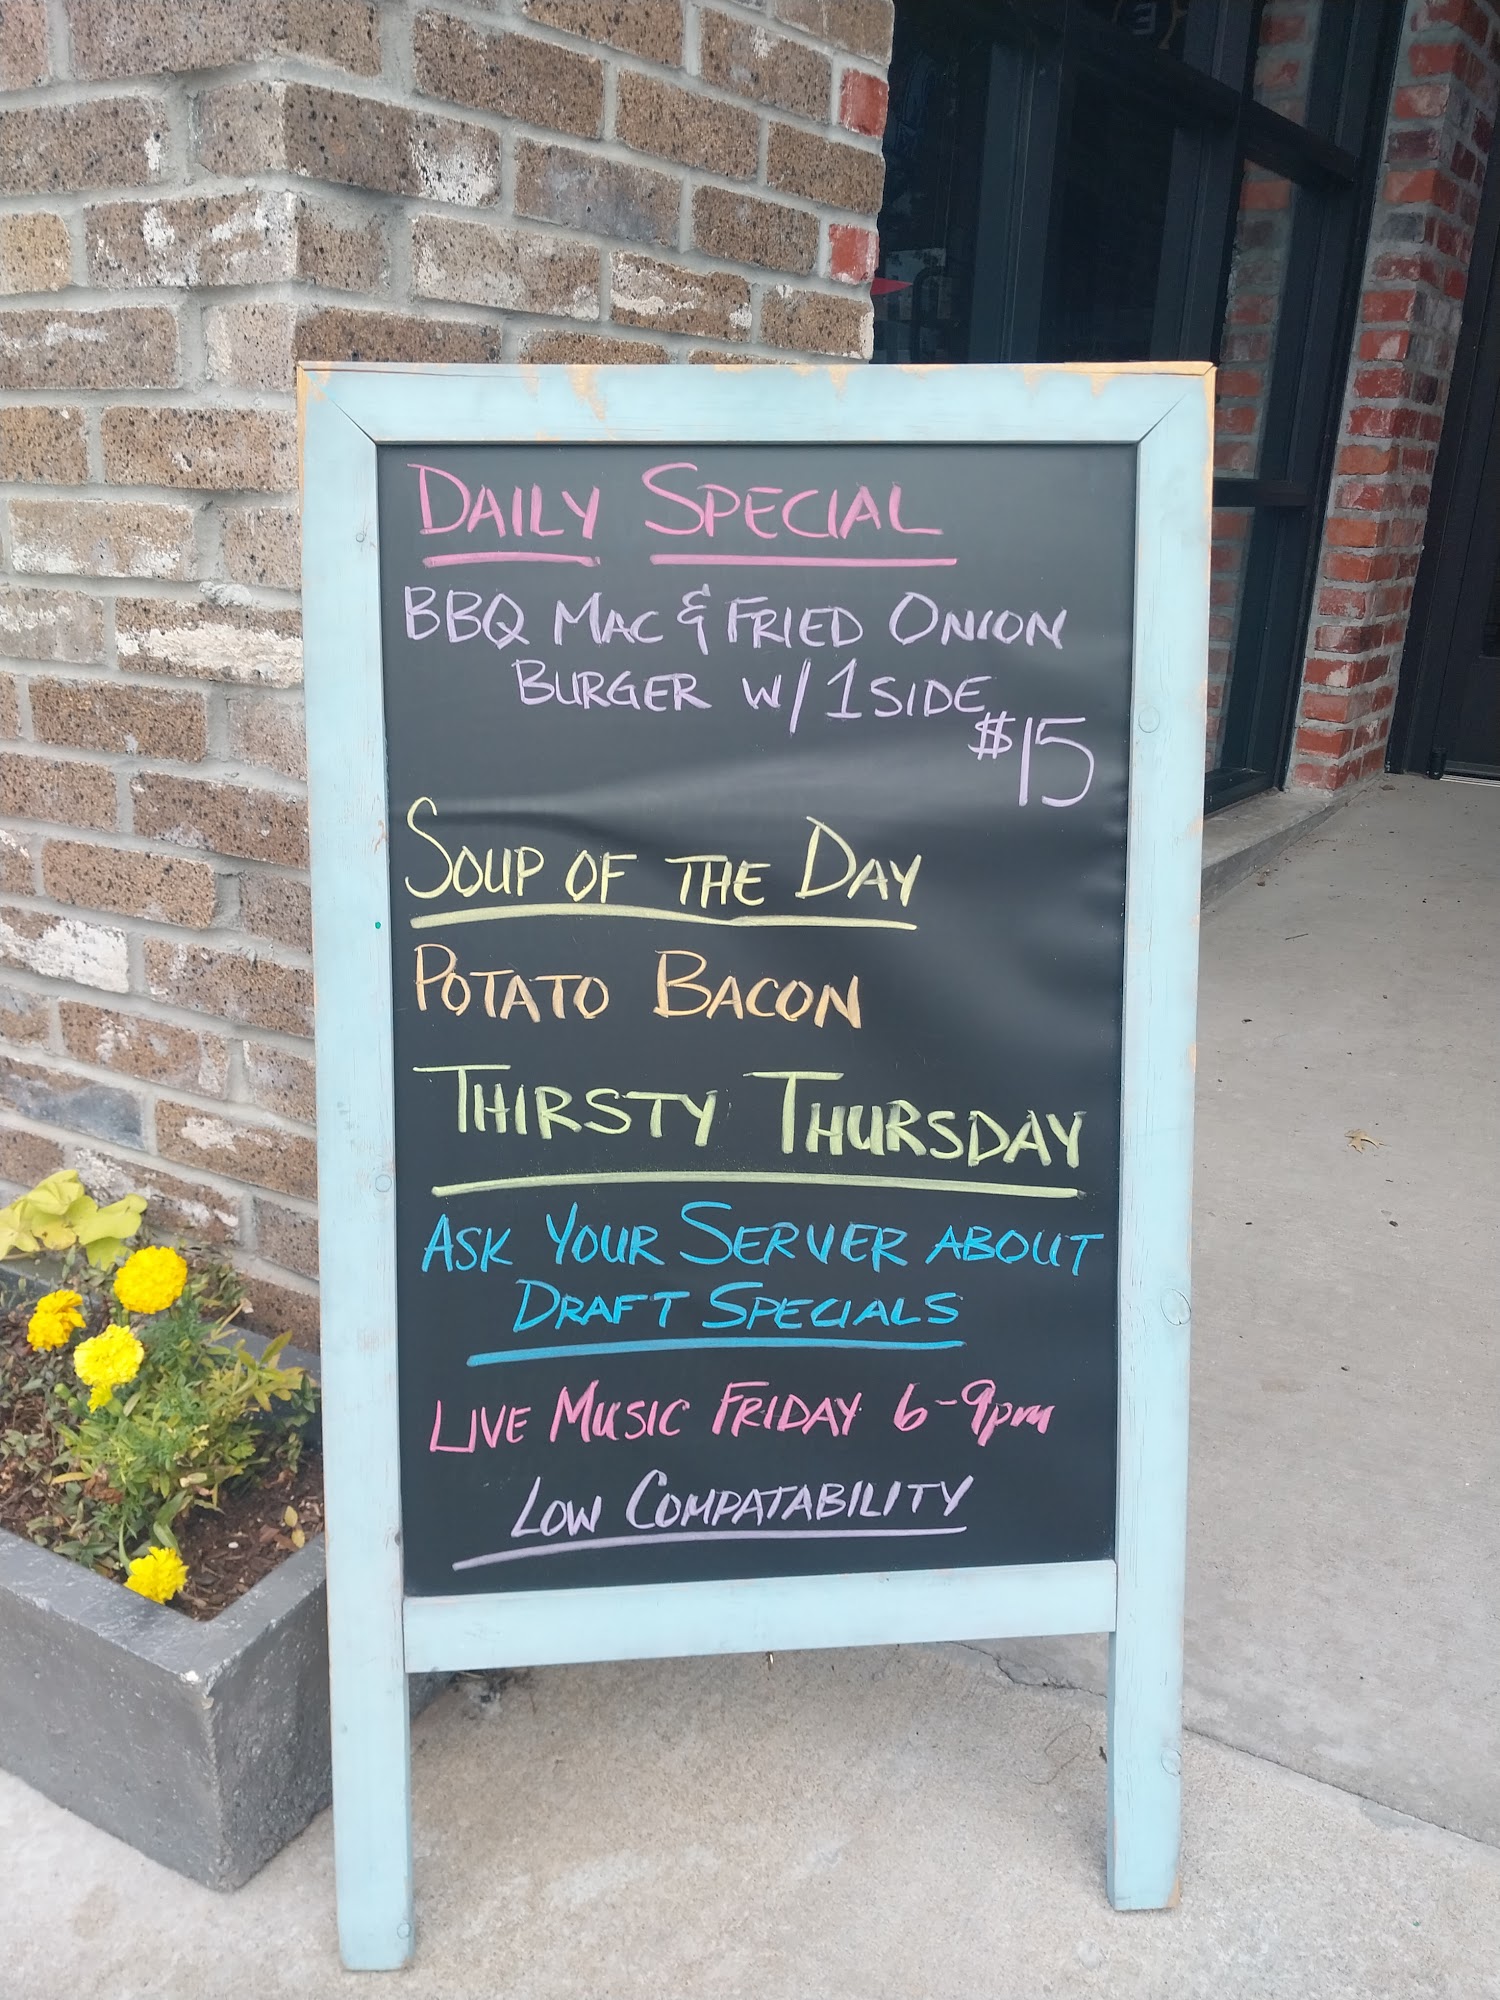 DAILY SPECIAL
BBQ MAC & FRIED ONION
BURGER W/ 1 SIDE
$15
SOUP OF THE DAY
POTATO BACON
THIRSTY THURSDAY
ASK YOUR SERVER ABOUT
DRAFT SPECIALS
LIVE MUSIC FRIDAY 6-9pm
LOW COMPATABILITY